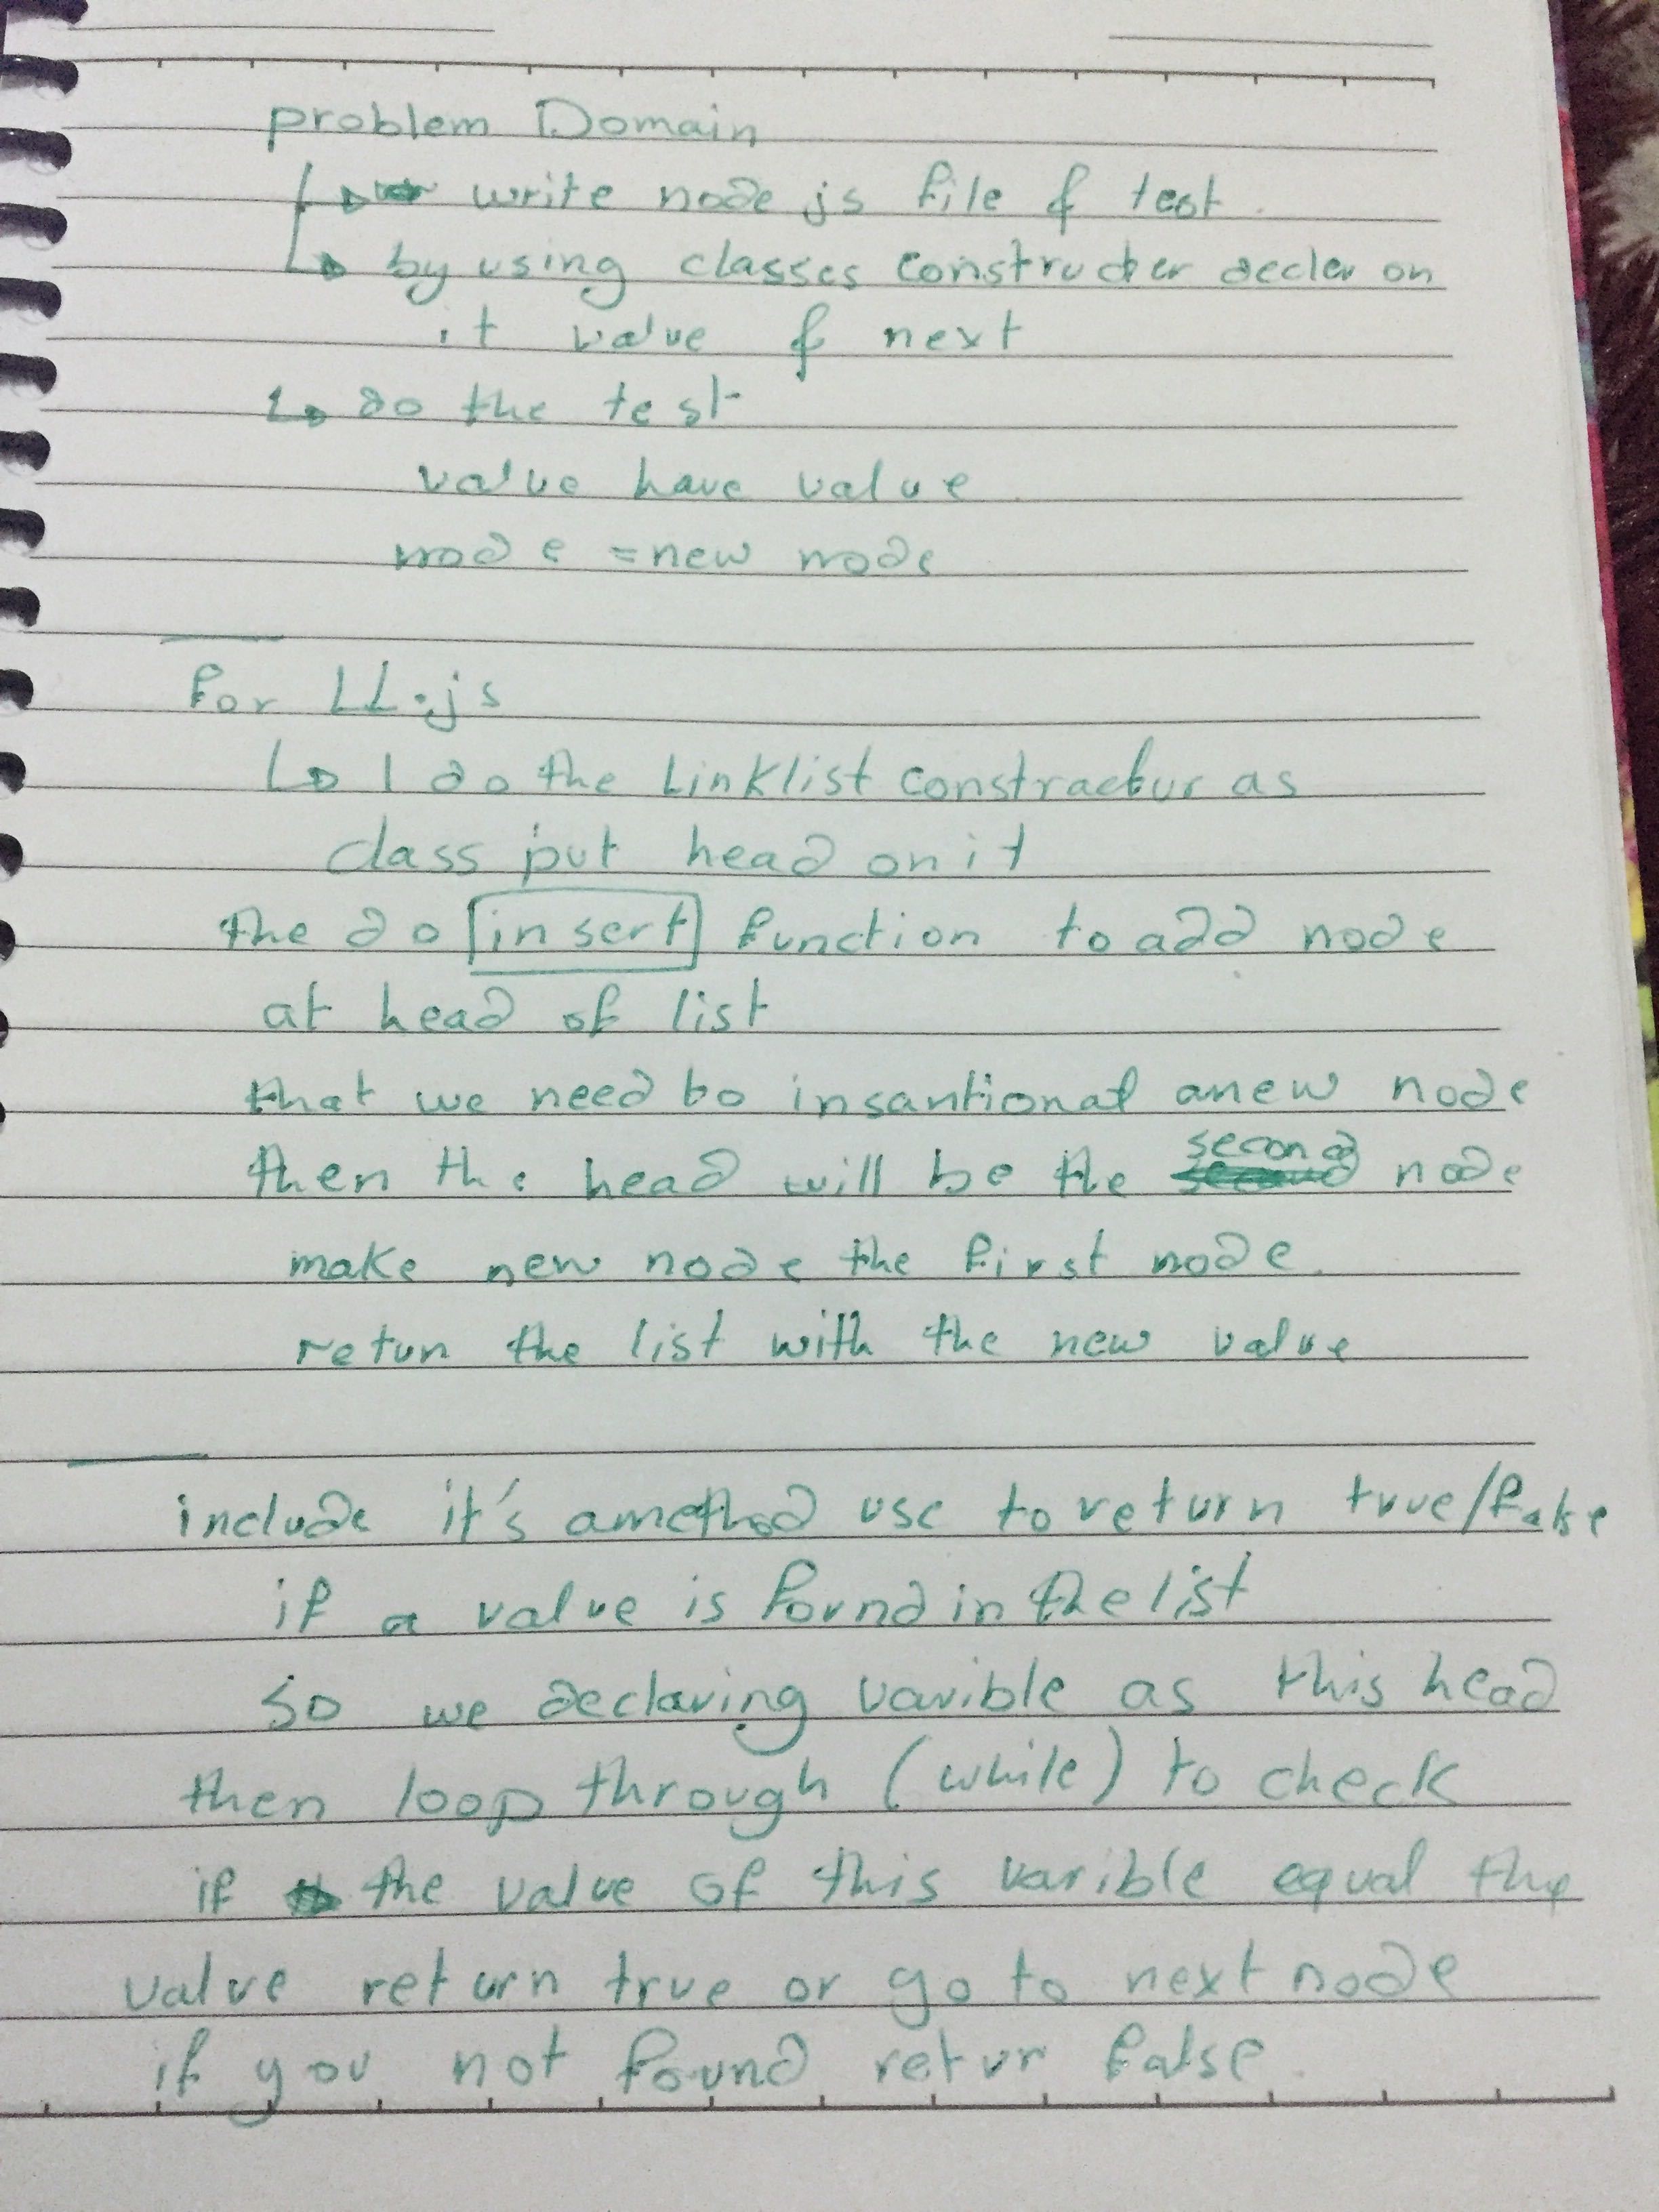 problem Domain
write node js file & test.
by using classes constructer decler on
it value & next
do the test
value have value
node = new node
for LL.js
I do the Linklist constractur as
class put head on it
the do insert function to add node
at head of list
that we need to insantional a new node
then the head will be the second node
make new node the first node.
retun the list with the new value
include it's a method use to return true/false
if a value is found in the list
so we declaring varible as this head
then loop through (while) to check
if the value of this varible equal the
value return true or go to next node
if you not found retur false.